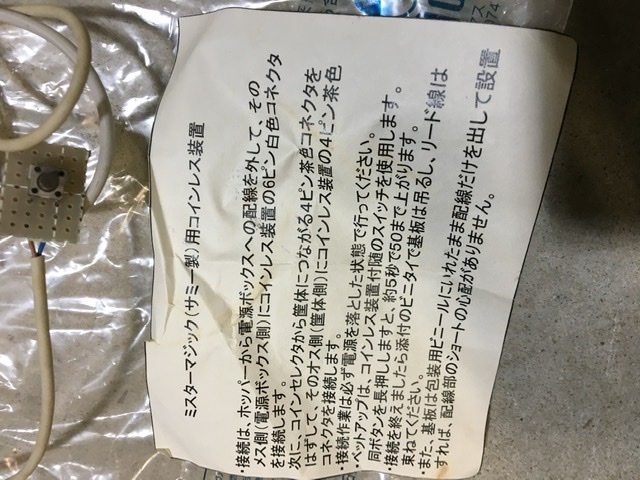 ミスターマジック(サミー製)用コインレス装置
・接続は、ホッパーから電源ボックスへの配線を外して、その
メス側(電源ボックス側)にコインレス装置の6ピン白色コネクタ
を接続します。
次に、コインセレクタから筐体につながる4ピン茶色コネクタを
はずして、そのオス側(筐体側)にコインレス装置の4ピン茶色
コネクタを接続します。
・接続作業は必ず電源を落とした状態で行ってください。
・ベットアップは、コインレス装置付随のスイッチを使用します。
同ボタンを長押ししますと、約5秒で50まで上がります。
・接続を終えましたら添付のビニタイで基板は吊るし、リード線は
束ねてください。
・また、基板は包装用ビニールにいれたまま配線だけを出して設置
すれば、配線部のショートの心配がありません。